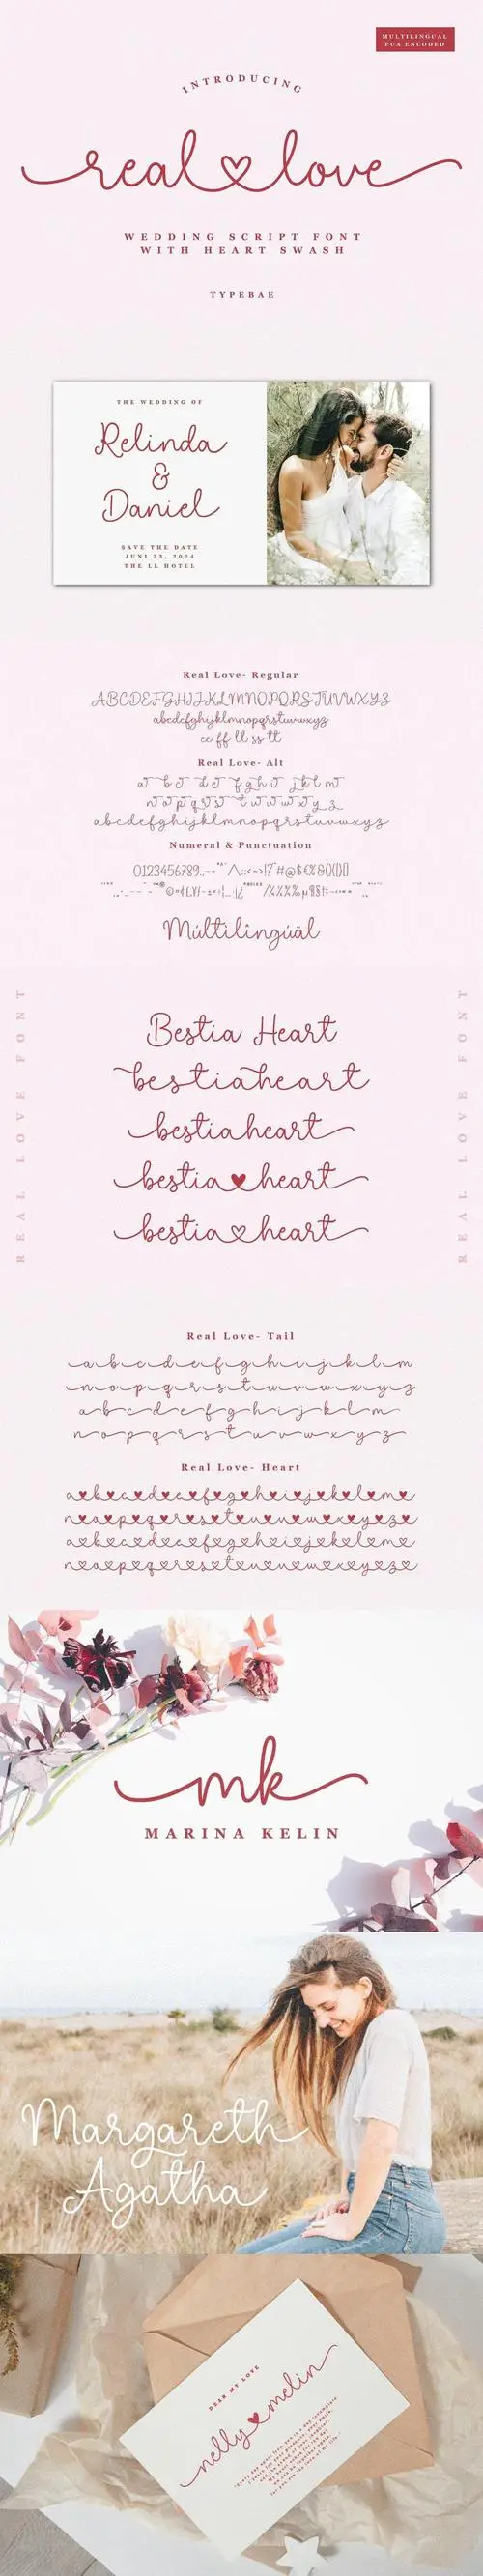 MULTILINGUAL
PUA ENCODED
INTRODUCING
real love
WEDDING SCRIPT FONT
WITH HEART SWASH
TYPEBAE
THE WEDDING OF
Relinda
&
Daniel
SAVE THE DATE
JUNI 23, 2024
THE LL HOTEL
Real Love- Regular
ABCDEFGHIJKLMNOPQRSTUVWXYZ
abcdefghijklmnopqrstuvwxyz
cc ff ll ss tt
Real Love- Alt
abcdefghijklmnopqrstuvwxyz
Numeral & Punctuation
0123456789
Múltilingúál
REAL LOVE FONT
Bestia Heart
bestiaheart
bestiaheart
bestia♥heart
bestia♡heart
REAL LOVE FONT
Real Love- Tail
a b c d e f g h i j k l m
n o p q r s t u v w x y z
a b c d e f g h i j k l m
n o p q r s t u v w x y z
Real Love- Heart
a♥b♥c♥d♥e♥f♥g♥h♥i♥j♥k♥l♥m♥
n♥o♥p♥q♥r♥s♥t♥u♥v♥w♥x♥y♥z♥
a♡b♡c♡d♡e♡f♡g♡h♡i♡j♡k♡l♡m♡
n♡o♡p♡q♡r♡s♡t♡u♡v♡w♡x♡y♡z♡
mk
MARINA KELIN
Margareth
Agatha
DEAR MY LOVE
nelly♥melin